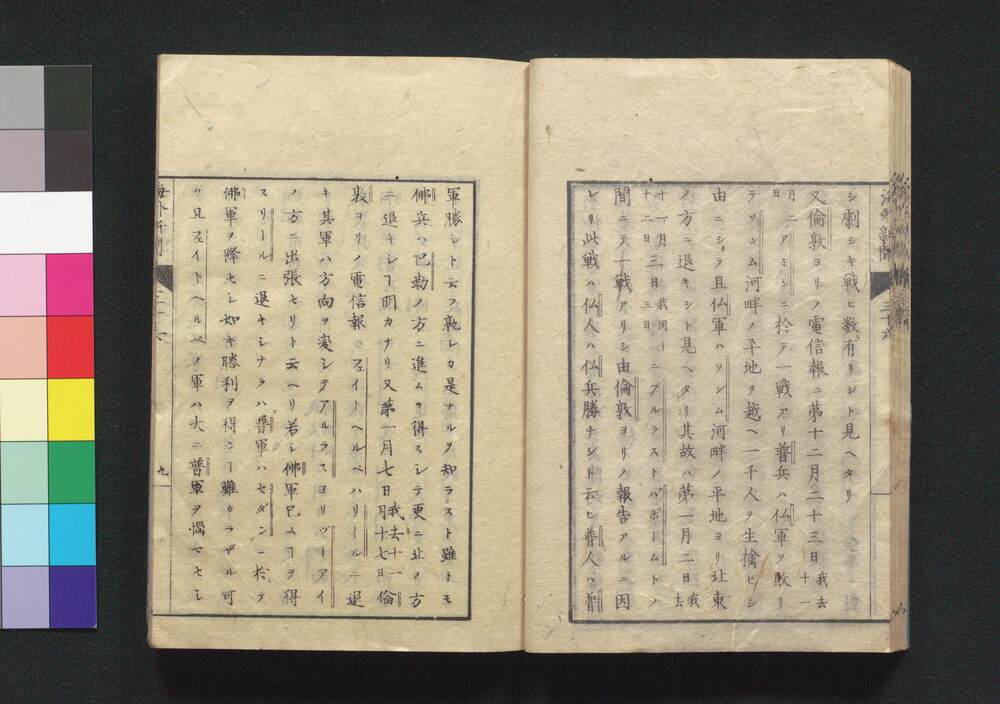 シ劇シキ戦ヒ数有リシト見ヘタリ
又倫敦ヨリノ電信報ニ第十二月二十三日我去十一
月二日アミンニ於テ一戦アリ普兵ハ仏軍ヲ敗リ
テソンム河畔ノ平地ヲ越ヘ一千人ヲ生擒セシ
由ニシテ且仏軍ハソンム河畔ノ平地ヨリ北東
ノ方ニ退キシト見ヘタリ其故ハ第一月二日我去
十一月十二日三日我同十三日ニアルラストバポームトノ
間ニテ一戦アリシ由倫敦ヨリノ報告アルニ因
レリ此戦ハ仏人ハ仏兵勝チシト云ヒ普人ハ普
海外新聞
軍勝シト云フ孰レカ是ナルヲ知ラスト雖トモ
佛兵ハ巴勒ノ方ニ進ムヲ得スシテ更ニ北ノ方
ニ退キシヿ明カナリ又第一月七日我去十一月十七日倫
敦ヨリノ電信報ニフェイトヘルベハリールニ退
キ其軍ハ方向ヲ変シテアルラスヨリヅーアイ
ノ方ニ出張セリト云ヘリ若シ佛軍巳ムヿヲ得
スリールニ退キシナラハ普軍ハセダンニ於テ
佛軍ヲ降セシ如キ勝利ヲ得ンヿ難カラザル可
シ且フェイトヘルベノ軍ハ大ニ普軍ヲ悩マセシ
海外新聞
九